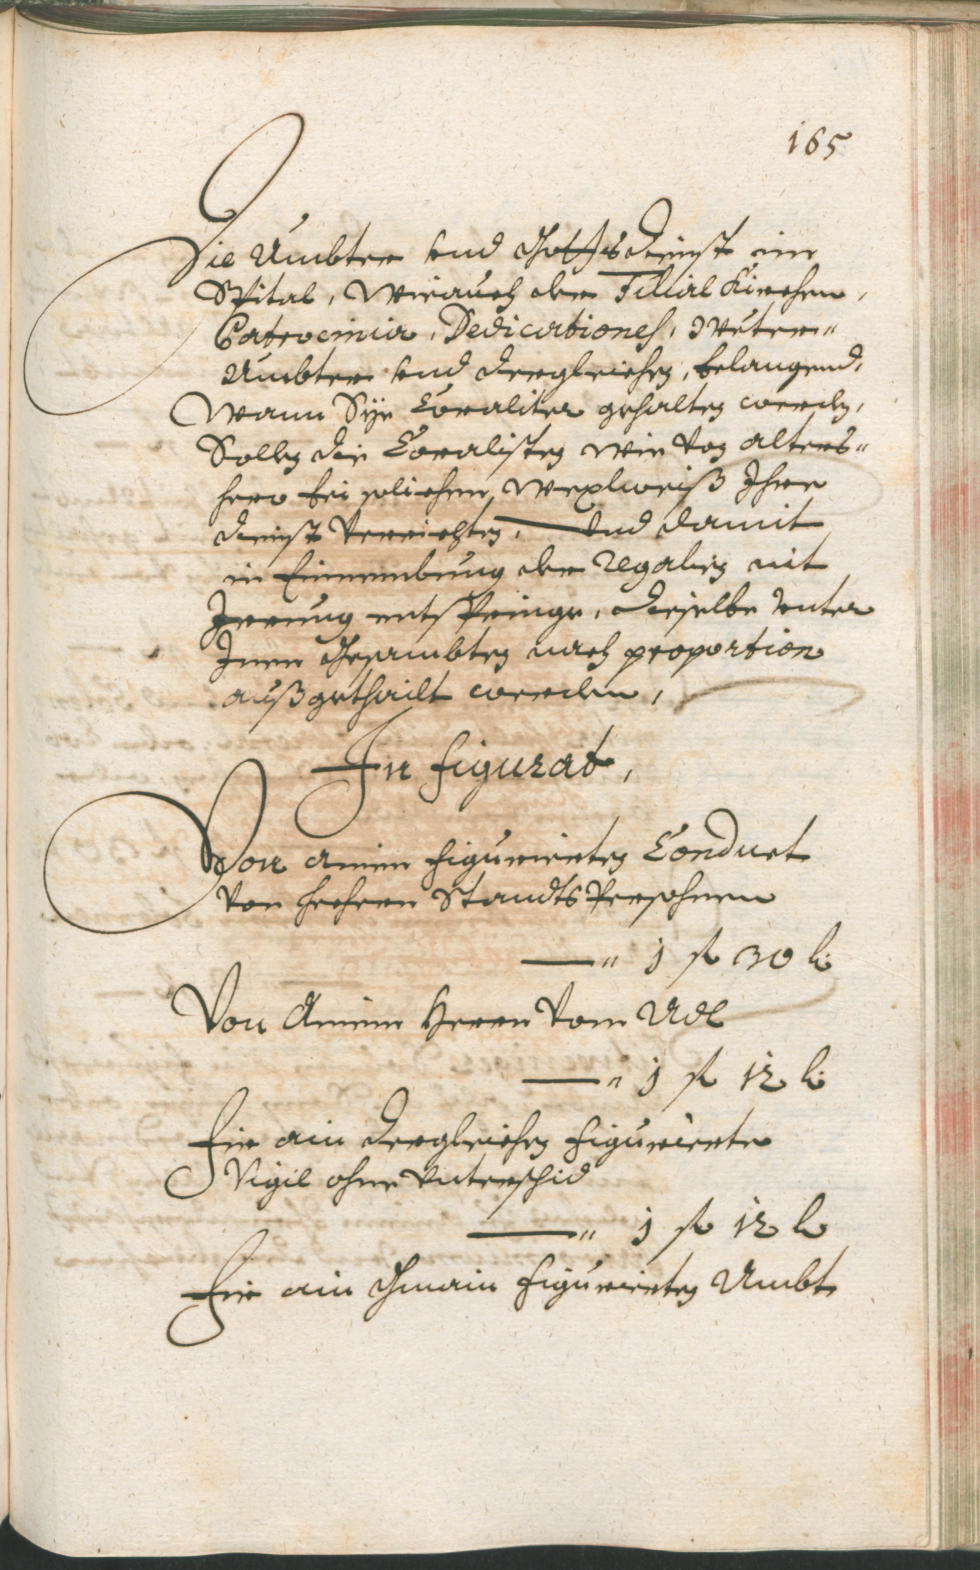 165
Die Ämbter und Gottsdienst im
Spital, wie auch der Filial Kirchen,
Patrocinia, Dedicationes,
Ämbter und dergleichen, belangend,
Wann Sye Coraliter gehalten werden,
Sollen die Coralisten wie von alters"
hero bei solichen, wexlweiß Ihre
dienst verrichten, und damit
in Einnembung der Regalien nit
Irrung entspringe, dieselbe unter
Inen Gesambten nach proportion
außgethailt werden,
In figurat,
Von ainem figurierten Conduct
von hochen Standts Persohnen
— " 1 fl 30 k
Von Ainem Herrn vom Adl
— " 1 fl 12 k
Fir ain dergleichen figurierte
Vigil ohne unterschid
— " 1 fl 12 k
Fir ain Gmain figurierten Ambt